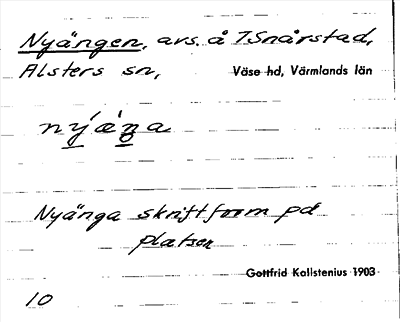 Nyängen, avs. å T. Snårstad,
Alsters sn, Väse hd, Värmlands län
Nyänga skriftform på
platsen
Gottfrid Kallstenius 1903
10